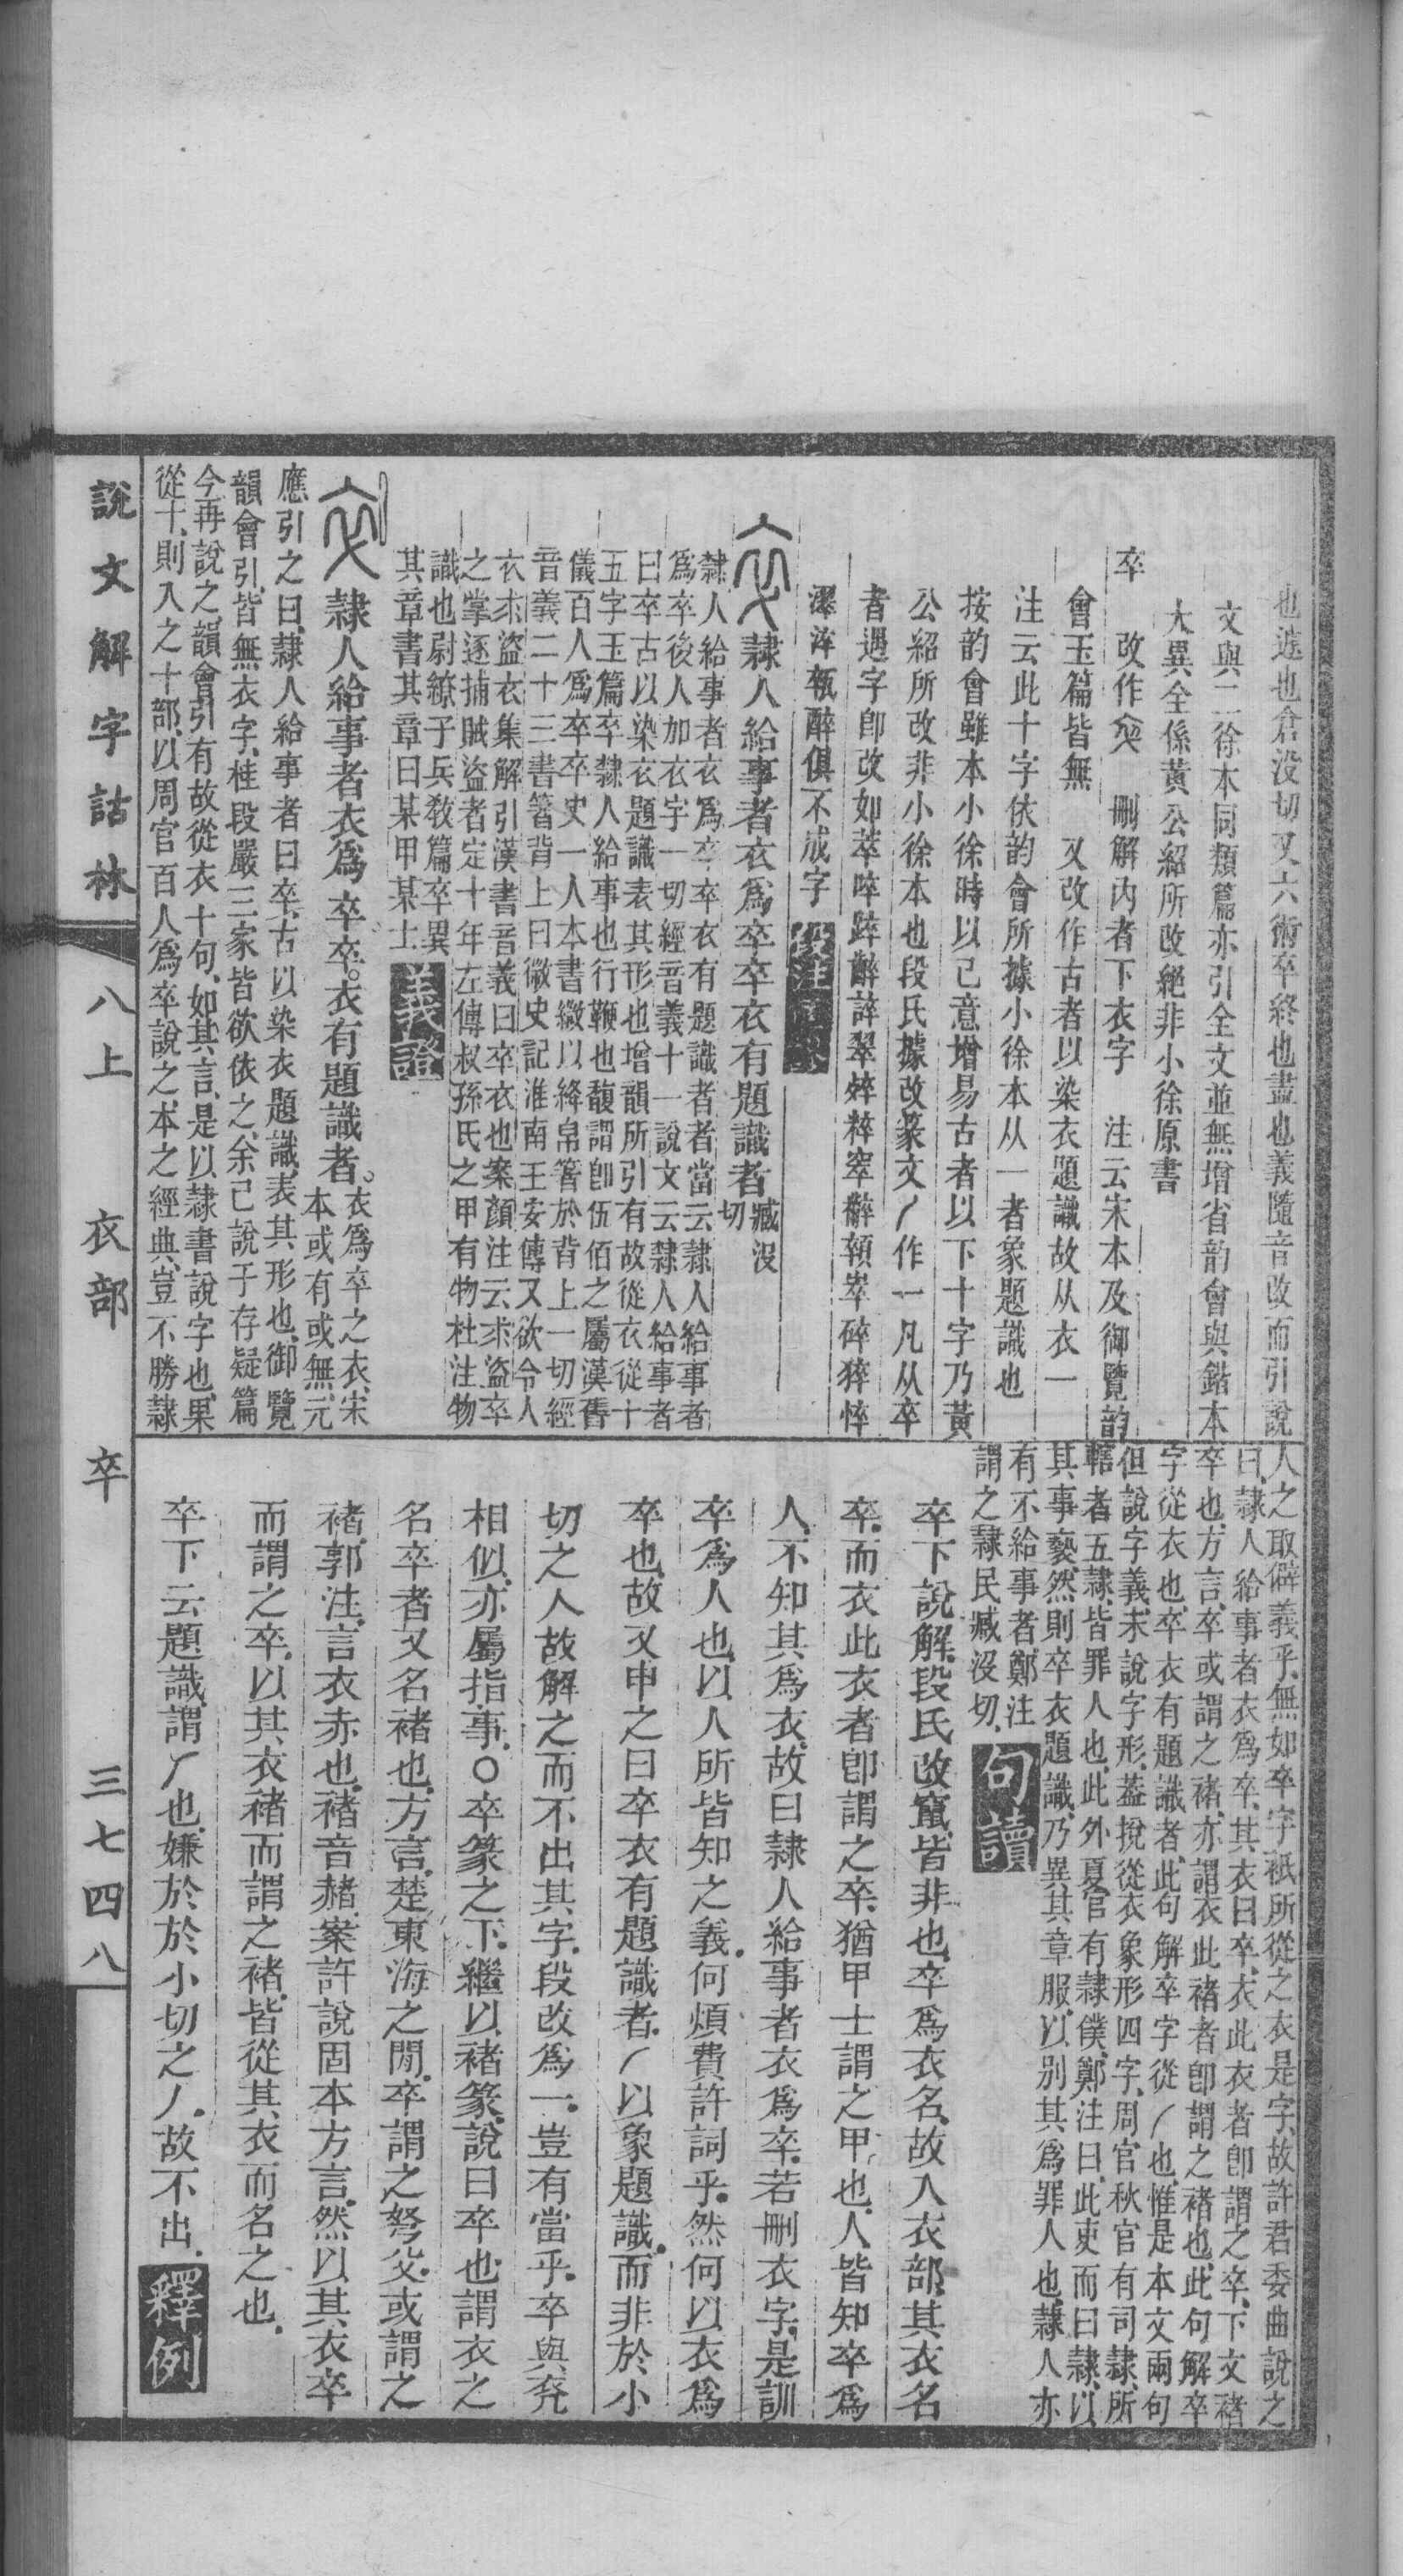 也迭也倉没切又六術卒終也盡也義隨音改而引說
文與二徐本同類篇亦引全文並無增省韵會與鍇本
大異全係黃公紹所改絕非小徐原書
卒　改作　刪解內者下衣字　注云宋本及御覽韵
會玉篇皆無　又改作古者以染衣題識故从衣一
注云此十字依韵會所據小徐本从一者象題識也
按韵會雖本小徐時以己意增易古者以下十字乃黃
公紹所改非小徐本也段氏據改篆文丿作一凡从卒
者遇字卽改如萃啐踤誶翠粹窣顇崒碎猝悴
淬醉俱不成字
隷人給事者衣爲卒卒衣有題識者臧没切
隷人給事者衣爲卒卒衣有題識者者當云隷人給事者
爲卒後人加衣字一切經音義十一說文云隷人給事者
曰卒古以染衣題識表其形也增韻所引有故從衣從十
五字玉篇卒隷人給事也行鞭也馥謂卽伍佰之屬漢舊
儀百人爲卒卒史一人本書徽以絳帛箸於背上一切經
音義二十三書箸背上曰徽史記淮南王安傳又欲令人
衣求盜衣集解引漢書音義曰卒衣也案顏注云求盜卒
之掌逐捕賊盜者定十年左傳叔孫氏之甲有物杜注物
識也尉繚子兵敎篇卒異
其章書其章曰某甲某士
義證
隷人給事者衣爲卒卒衣有題識者。衣爲卒之衣宋
本或有或無元
應引之曰隷人給事者曰卒古以染衣題識表其形也御覽
韻會引皆無衣字桂段嚴三家皆欲依之余已說于存疑篇
今再說之韻會引有故從衣十句如其言是以隷書說字也果
從十則入之十部以周官百人爲卒說之本之經典豈不勝隷
人之取僻義乎無如卒字祇所從之衣是字故許君委曲說之
曰隷人給事者衣爲卒其衣曰卒衣此衣者卽謂之卒下文褚
卒也方言卒或謂之褚亦謂衣此褚者卽謂之褚也此句解卒
字從衣也卒衣有題識者此句解卒字從丿也惟是本文兩句
但說字義未說字形蓋挩從衣象形四字周官秋官有司隷所
轄者五隷皆罪人也此外夏官有隷僕鄭注曰此吏而曰隷以
其事褻然則卒衣題識乃異其章服以別其爲罪人也隷人亦
有不給事者鄭注
謂之隷民臧没切
句讀
卒下說解段氏改竄皆非也卒爲衣名故入衣部其衣名
卒而衣此衣者卽謂之卒猶甲士謂之甲也人皆知卒爲
人不知其爲衣故曰隷人給事者衣爲卒若刪衣字是訓
卒爲人也以人所皆知之義何煩費許詞乎然何以衣爲
卒也故又申之曰卒衣有題識者丿以象題識而非於小
切之人故解之而不出其字段改爲一豈有當乎卒與兖
相似亦屬指事○卒篆之下繼以褚篆說曰卒也謂衣之
名卒者又名褚也方言楚東海之閒卒謂之弩父或謂之
褚郭注言衣赤也褚音赭案許說固本方言然以其衣卒
而謂之卒以其衣褚而謂之褚皆從其衣而名之也
卒下云題識謂丿也嫌於於小切之丿故不出
釋例
說文解字詁林　八上　衣部　卒　三七四八